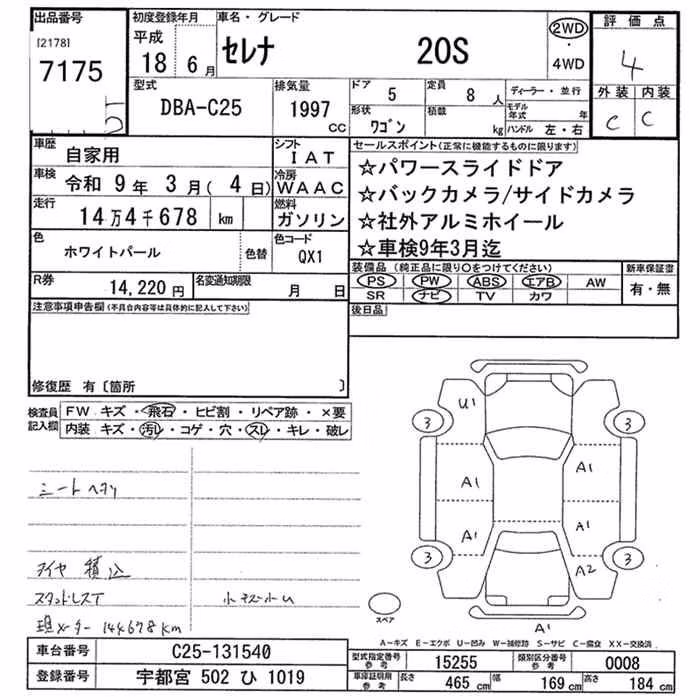 出品番号
[2178]
7175
初度登録年月
平成
18 6月
車名・グレード
セレナ 20S
2WD
・
4WD
評価点
4
外装 内装
C C
型式
DBA-C25
排気量
1997
CC
ドア
5
定員
8人
形状
ワゴン
積載
kg
ディーラー・並行
モデル年式 年
ハンドル 左・右
車歴
自家用
シフト
IAT
車検
令和 9年 3月( 4日)
冷房
WAAC
走行
14万4千678 km
燃料
ガソリン
色
ホワイトパール
色替
色コード
QX1
R券
14,220円
名変通知期限
月 日
セールスポイント(正常に機能するものに限ります)
☆パワースライドドア
☆バックカメラ/サイドカメラ
☆社外アルミホイール
☆車検9年3月迄
装備品 (純正品に限り〇をつけてください)
PS PW ABS エアB AW
SR ナビ TV カワ
新車保証書
有・無
後日品
注意事項申告欄(不具合内容等は具体的に記入して下さい)
修復歴 有〔箇所 〕
検査員記入欄
FW キズ・飛石・ヒビ割・リペア跡・×要
内装 キズ・汚レ・コゲ・穴・スレ・キレ・破レ
シートヘタリ
タイヤ積込
スタッドレスT
現メーター 144678km
U1
3
3
A1
A1
A1
A1
3
3
A2
A1
スペア
A-キズ E-エクボ U-凹み W-補修跡 S-サビ C-腐食 XX-交換済
車台番号
C25-131540
登録番号
宇都宮 502 ひ 1019
型式指定番号
参考
15255
類別区分番号
参考
0008
車庫証明用
参考
長さ
465 cm
幅
169 cm
高さ
184 cm